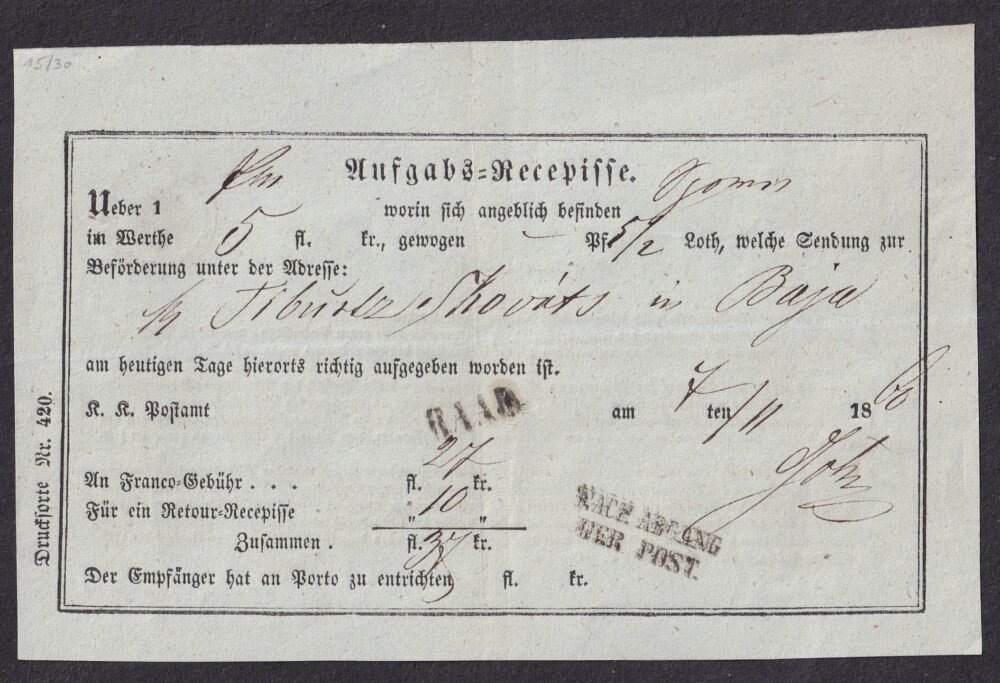 15/30
Aufgabs-Recepisse.
Ueber 1 worin sich angeblich befinden
im Werthe 5 fl. kr., gewogen – Pf 5/2 Loth, welche Sendung zur
Beförderung unter der Adresse:
in Baja
am heutigen Tage hierorts richtig aufgegeben worden ist.
K. K. Postamt RAAB am 7 ten/11 1860
An Franco-Gebühr . . . fl. 27 kr.
Für ein Retour-Recepisse " 10 "
Zusammen . fl. 37 kr.
Der Empfänger hat an Porto zu entrichten fl. kr.
NACH ABGANG
DER POST.
Drucksorte Nr. 420.